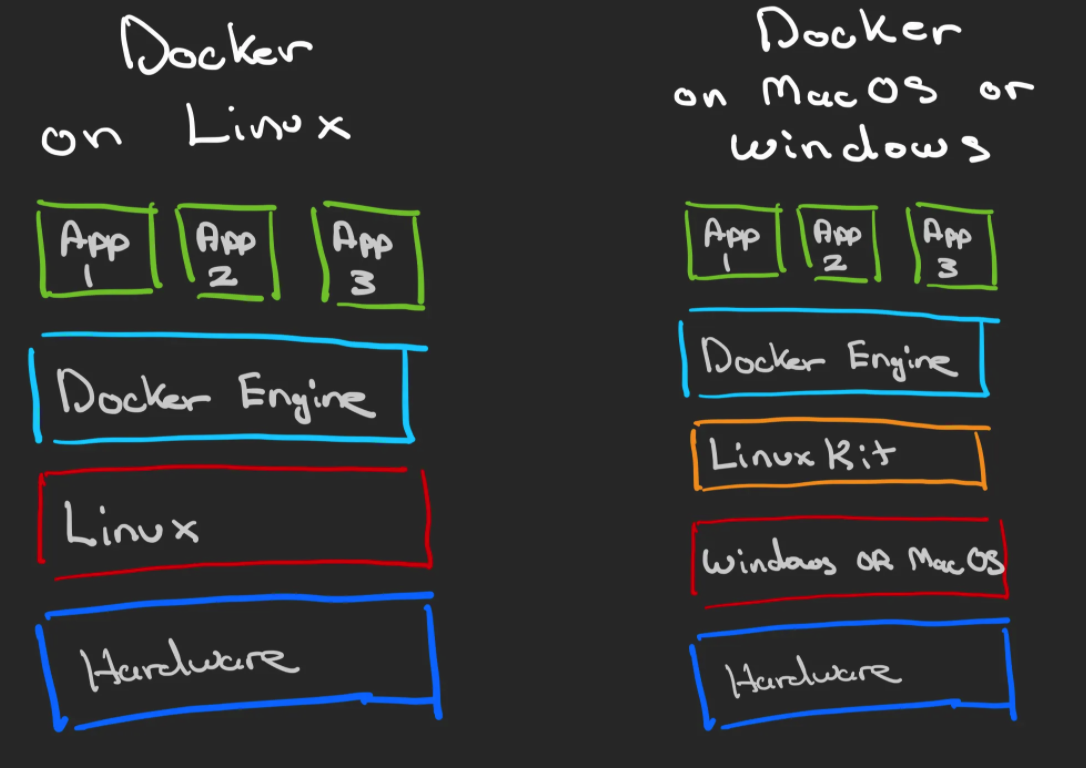 Docker
on Linux
App
1
App
2
App
3
Docker Engine
Linux
Hardware
Docker
on MacOS or
windows
App
1
App
2
App
3
Docker Engine
Linux Kit
Windows OR MacOS
Hardware